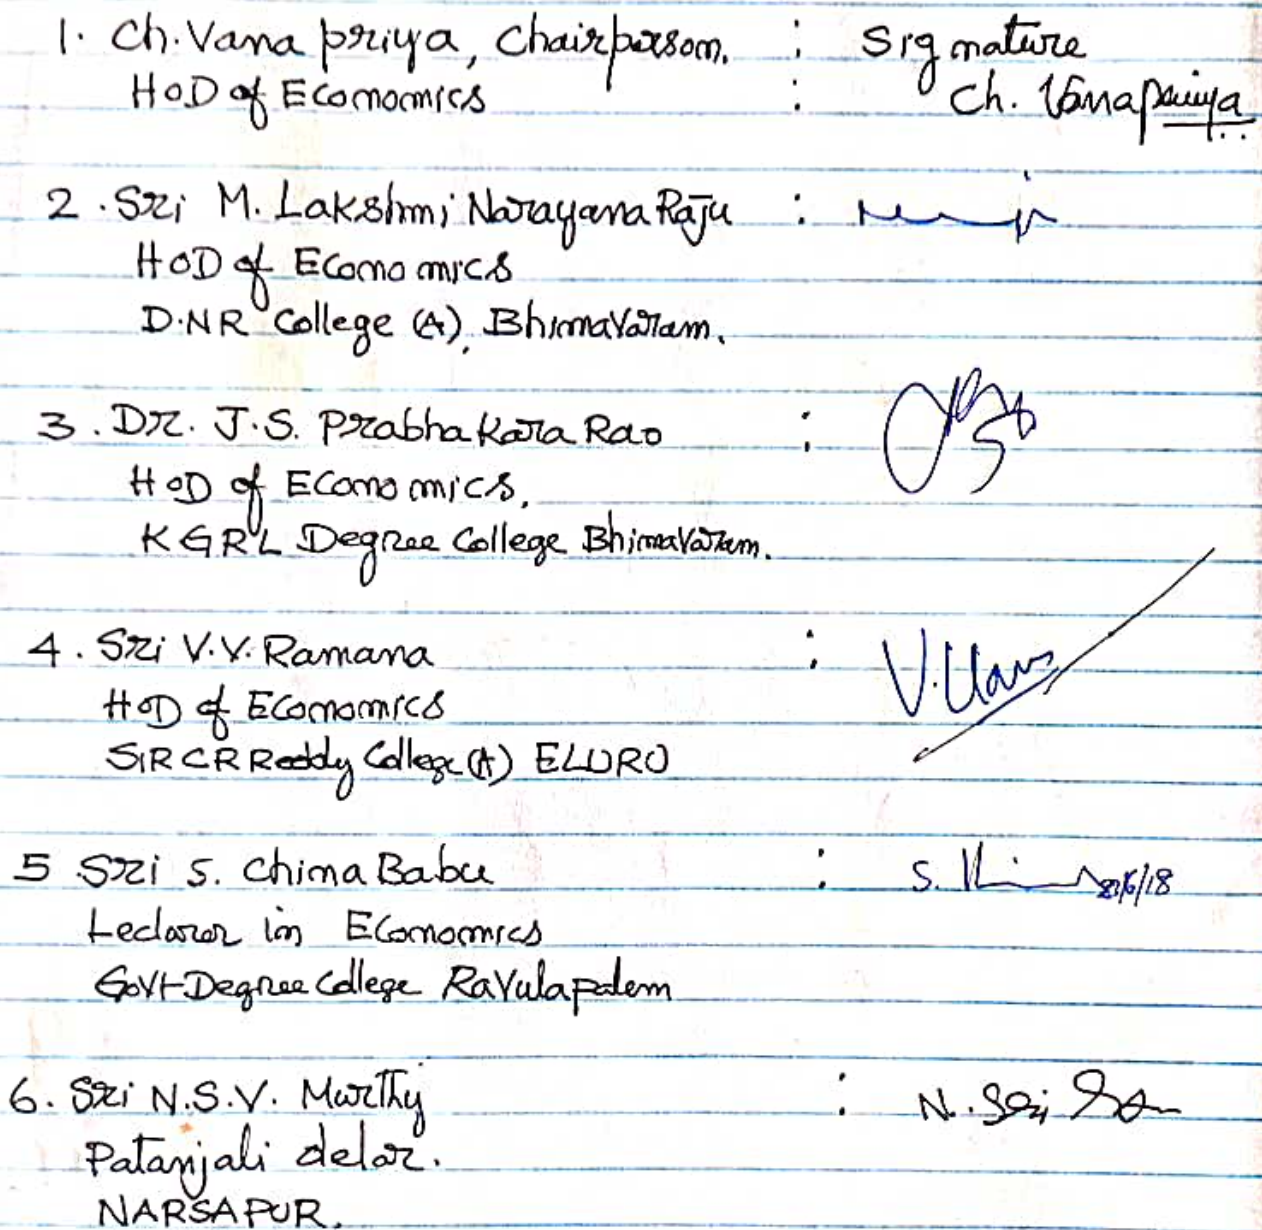 1. Ch. Vana priya, Chairperson. : Signature
HOD of Economics : Ch. Vanapriya
2. Sri M. Lakshmi Narayana Raju :
HOD of Economics
D.N.R College (A), Bhimavaram.
3. Dr. J.S. Prabhakara Rao :
HOD of Economics,
KGRL Degree College Bhimavaram.
4. Sri V.V. Ramana :
HOD of Economics
SIR CR Reddy College (A) ELURU
5 Sri S. China Babu : S. 21/6/18
Lecturer in Economics
Govt Degree College Ravulapalem
6. Sri N.S.V. Murthy : N. Sri
Patanjali delar.
NARSAPUR.